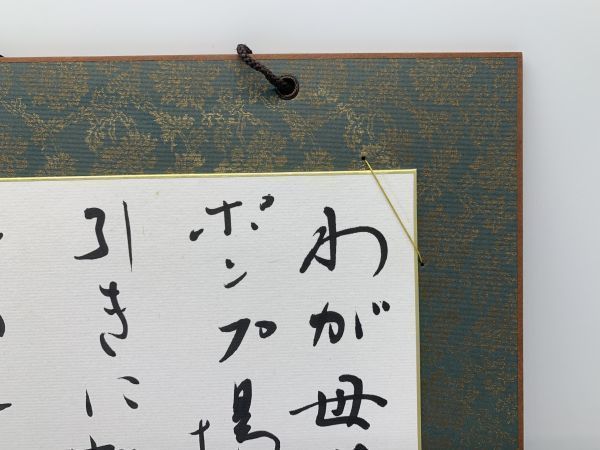 わが母
ポンプ場
引きに